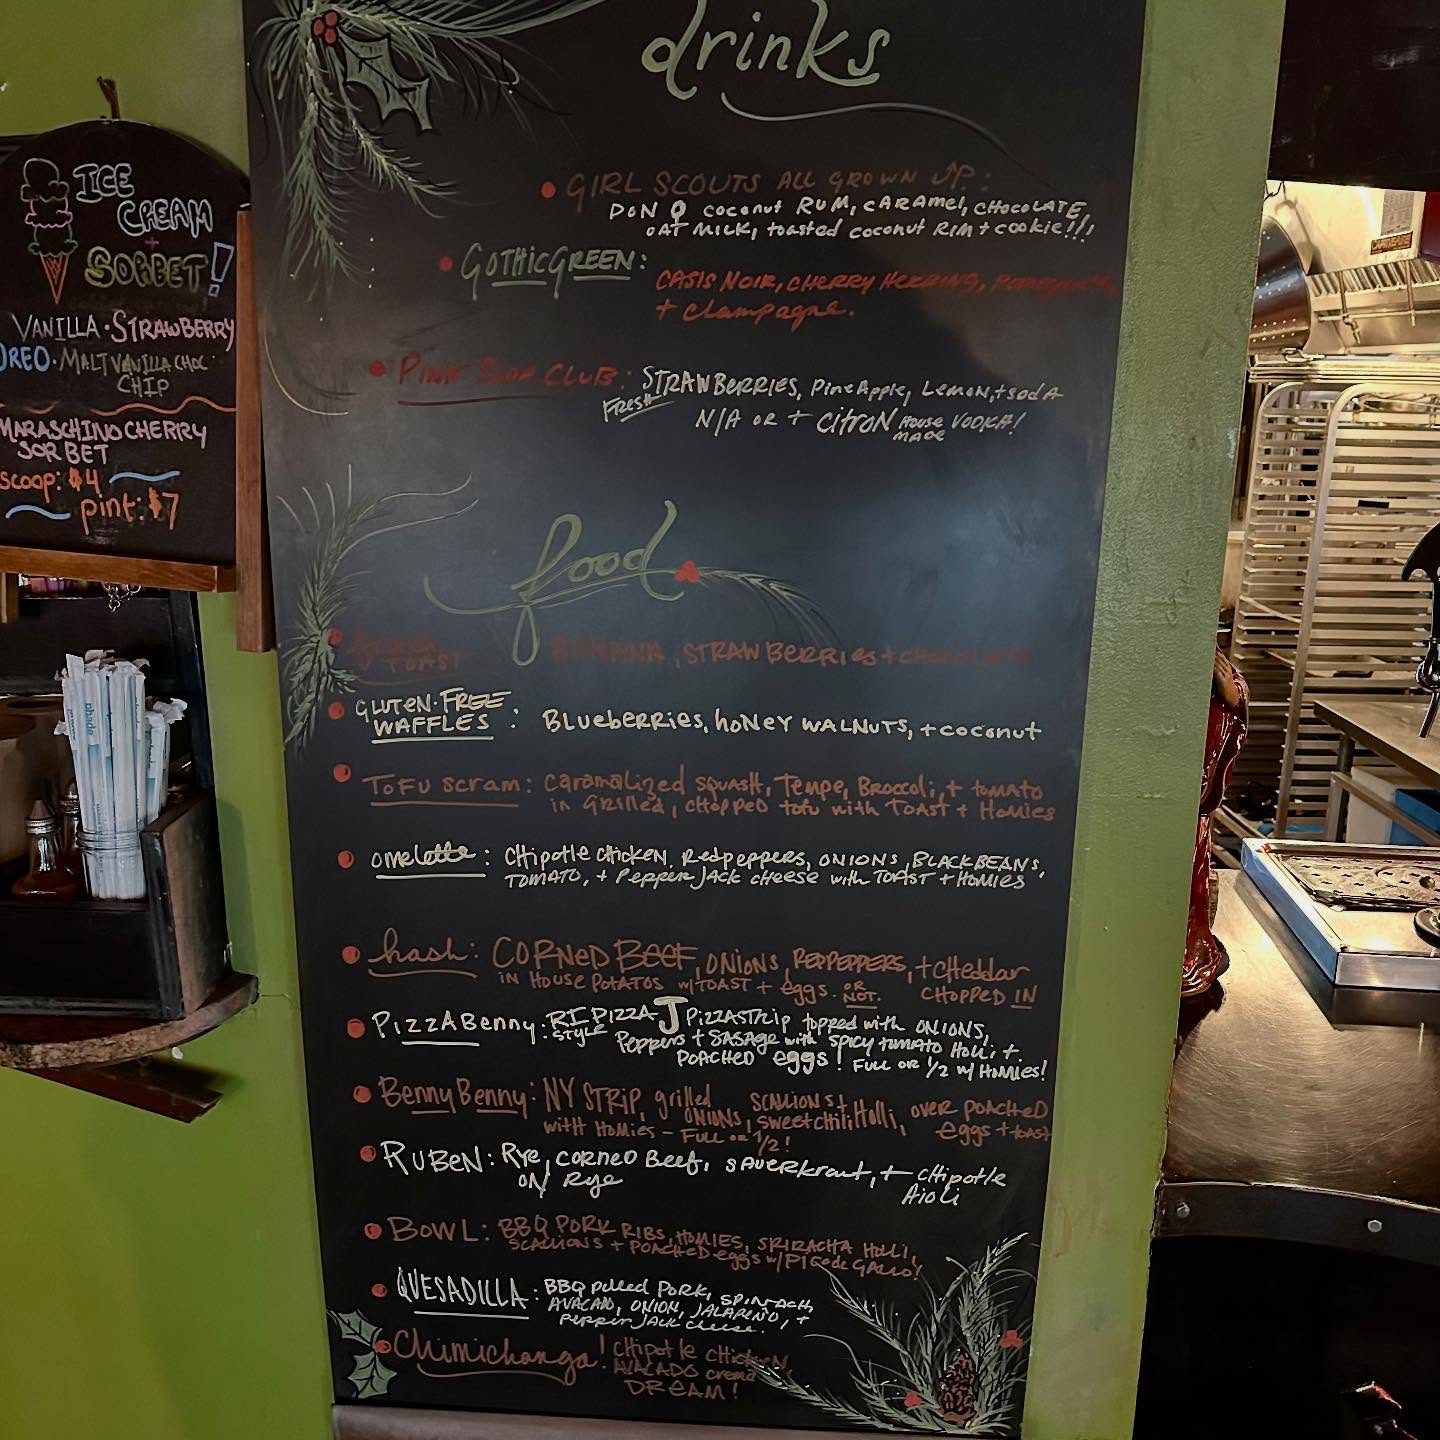 drinks
GIRL SCOUTS ALL GROWN UP:
DON Q coconut RUM, CARAMEL, CHOCOLATE,
OAT MILK, toasted coconut RIM + cookie!!!
GOTHIC GREEN:
CASIS NOIR, CHERRY HERRING,
+ champagne.
PINK SODA CLUB: STRAWBERRIES, PineApple, Lemon, + sodA
FRESH
N/A OR + CITRON HOUSE MADE VODKA!
food
TOAST , STRAWBERRIES + CHOCOLATE
GLUTEN-FREE
WAFFLES : BLueberries, honey WALNUTS, + coconut
TOFU scram: caramalized squash, Tempe, Broccoli, + tomato
in Grilled, chopped tofu with TOAST + Homies
omelette: CHipotle chicken, Redpeppers, ONIONS, BLACKBEANS,
TOMATO, + PEPPER JACK cheese with TOAST + HOMIES
hash: CORNED BEEF, ONIONS, REDPEPPERS, + CHeddar
IN House POTATOS w/TOAST + eggs. OR NOT. CHOPPED IN
PIZZA Benny. RI PIZZA J PIZZASTrip topped with ONIONS,
STYLE Peppers + SASAGE with spicy tomato Holli +
POACHED eggs! FULL OR 1/2 w/ HOMIES!
Benny Benny: NY STRIP, grilled ONIONS, SCALLIONS + sweet chili Holli, over POACHED
with Homies - FULL or 1/2! eggs + toast
RUBEN: Rye, corned Beef, saverkraut, + CHipotle
ON Rye Aioli
BOWL: BBQ PORK RIBS, HOMIES, SRIRACHA HOLLI,
SCALLIONS + POACHED eggs w/ PICode GALLO!
QUESADILLA: BBQ pulled PORK, SPINACH,
AVACADO, ONION, JALAPEÑO, +
PEPPER JACK cheese.
Chimichanga! CHipotle CHicken
AVACADO crema
DREAM!
ICE
CREAM
+
SORBET!
VANILLA · STRAWBERRY
OREO · MALT VANILLA CHOC
CHIP
MARASCHINO CHERRY
SORBET
scoop: $4
pint: $7
phade